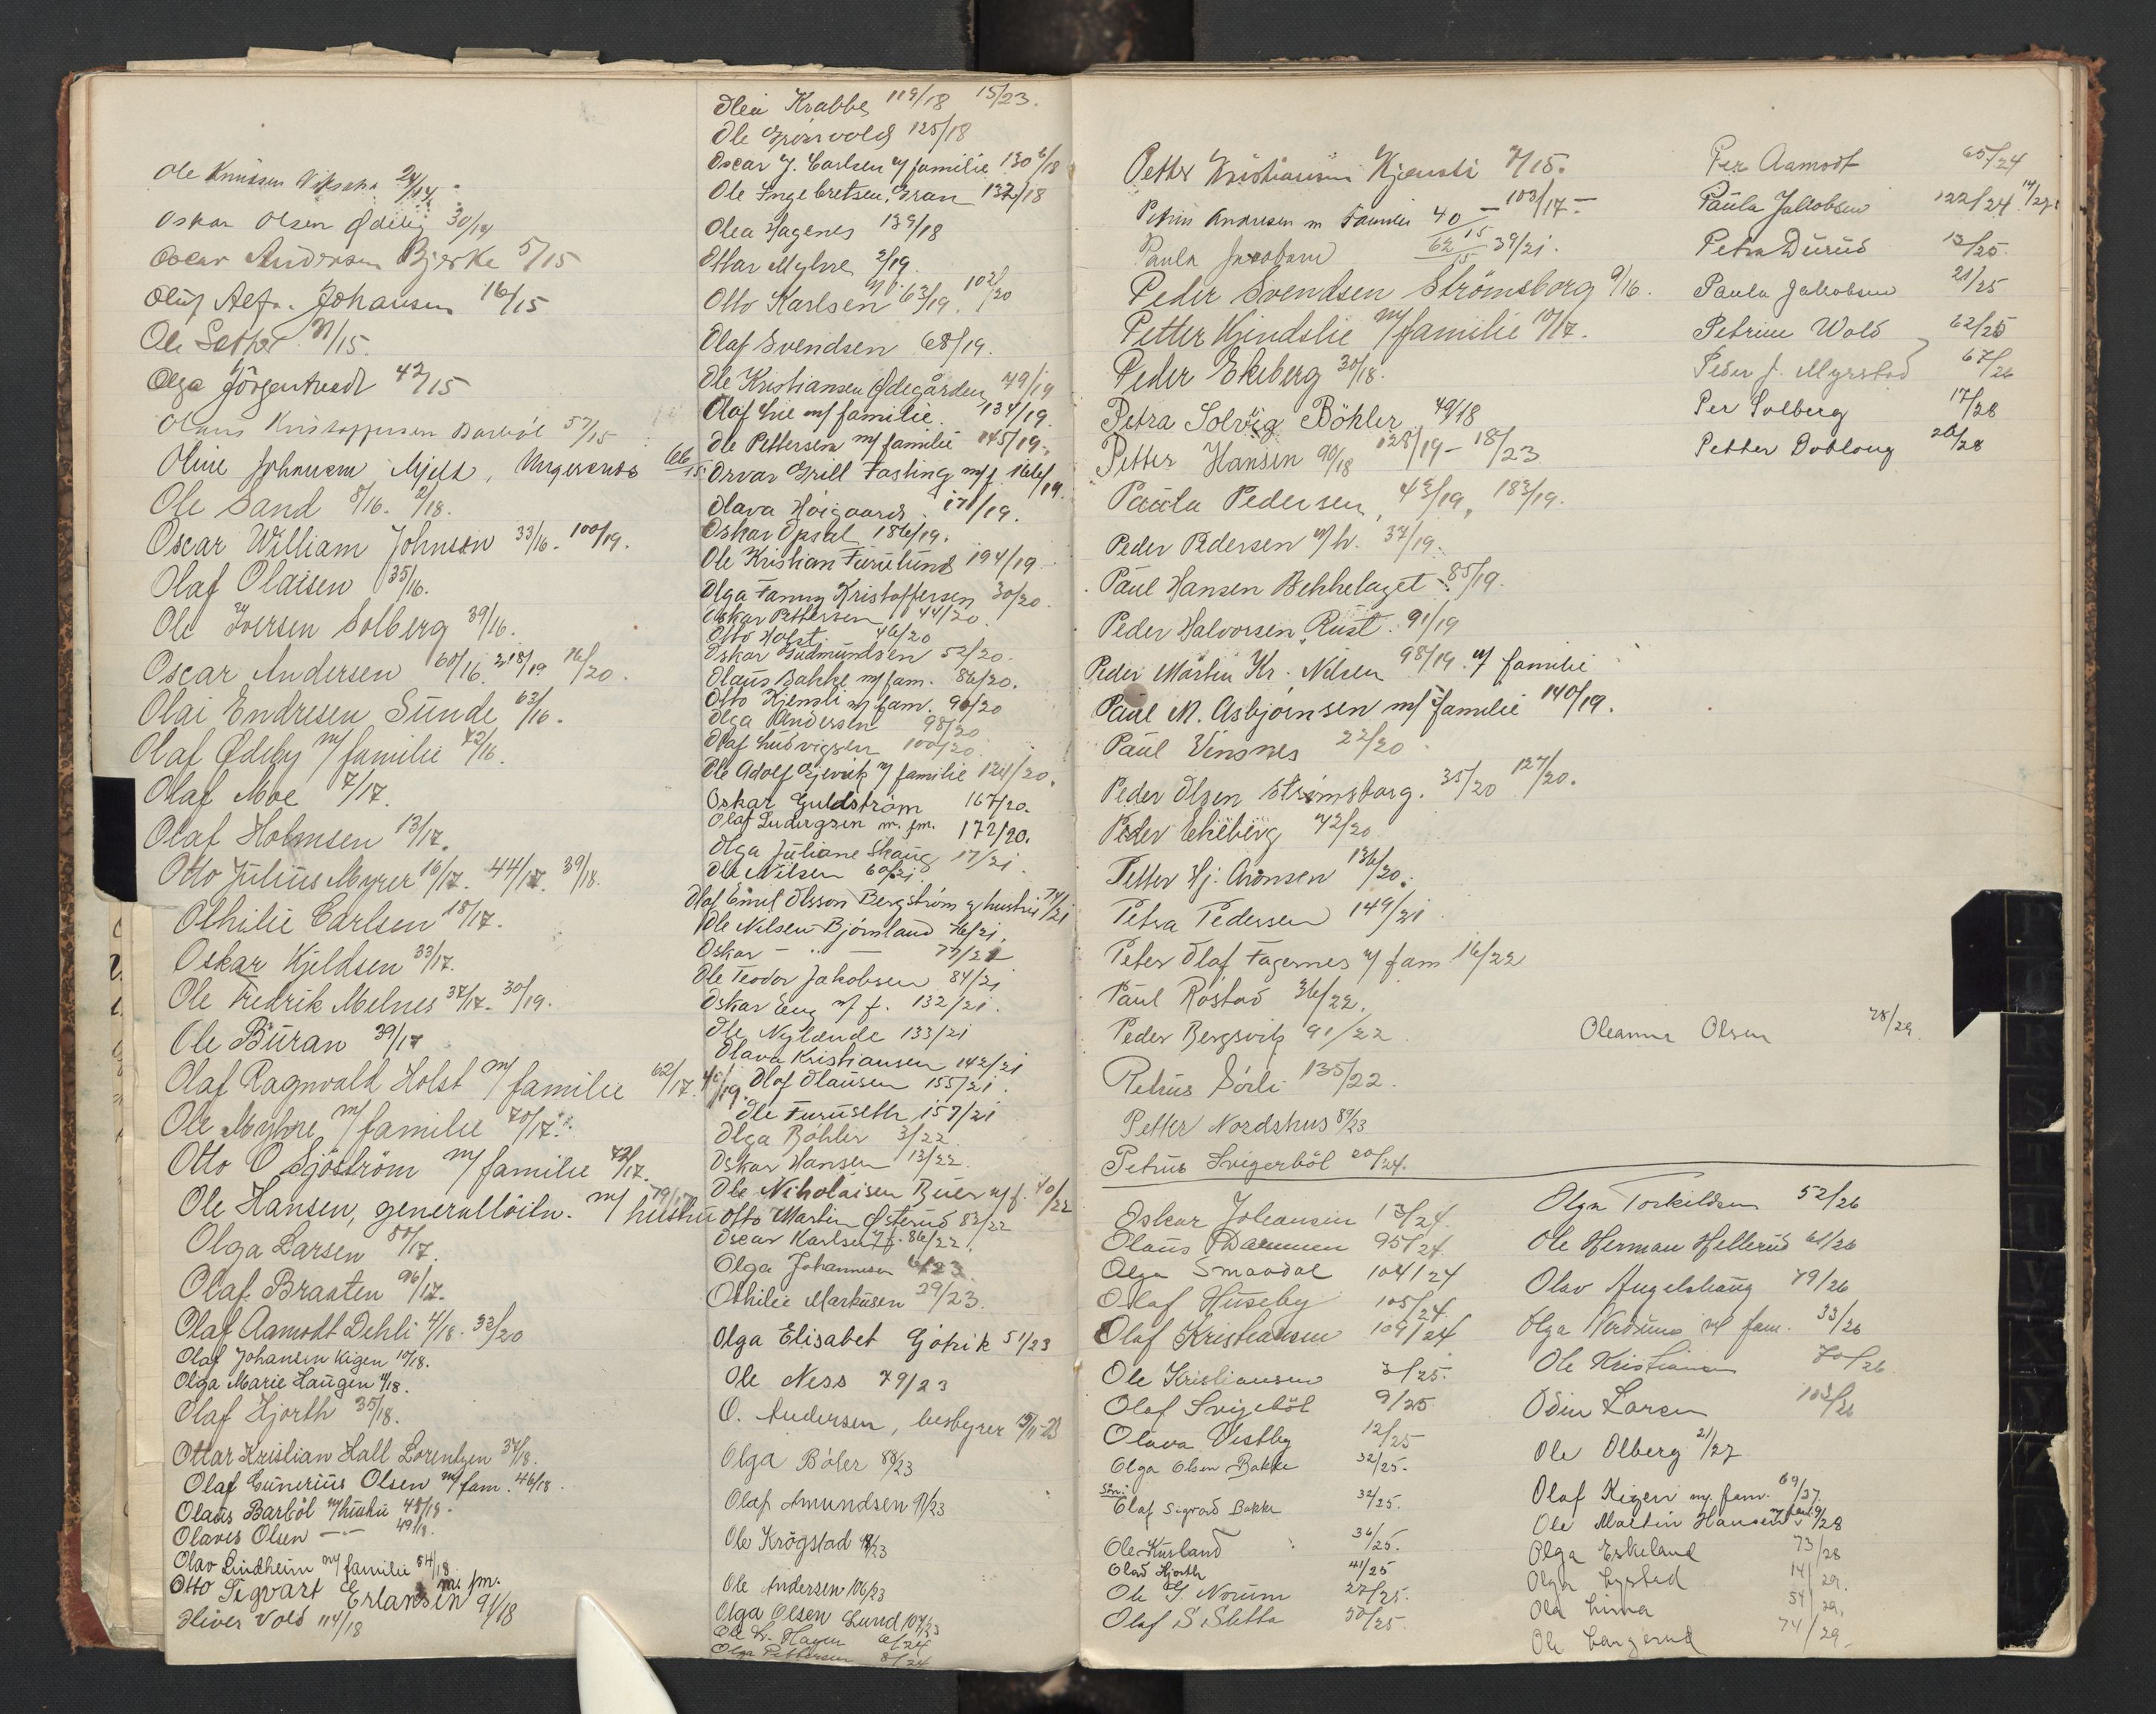 Ole Knudsen 24/14.
Oskar Olsen Ødelig 30/14
Oscar Andersen Bjerke 5/15
Oluf Alfr. Johansen 16/15
Ole Sether 31/15.
Olga Jörgentvedt 42/15
Olaus Kristoffersen Barböl 57/15
Oline Johansen Mjelt, 66/15
Ole Sand 8/16. 2/18.
Oscar William Johnson 33/16. 100/19.
Olaf Olaisen 35/16.
Ole Iversen Solberg 39/16.
Oscar Andersen 60/16. 218/19 76/20.
Olai Endresen Sunde 63/16.
Olaf Ødeby m/familie 72/16.
Olaf Moe 7/17.
Olaf Holmsen 13/17.
Otto Julius Myrer 16/17. 44/17. 39/18.
Othilie Carlsen 18/17.
Oskar Kjeldsen 33/17.
Ole Fredrik Melnes 37/17. 30/19.
Ole Buran 39/17
Olaf Ragnvald Holst m/familie 62/17.
Ole Myhre m/familie 70/17.
Otto O Sjöström m/familie 72/17.
Ole Hansen, generallöitn. m/hustru 79/17
Olga Larsen 80/17.
Olaf Braaten 96/17.
Olaf Aamodt Dehli 4/18. 32/20
Olaf Johansen Kigen 10/18.
Olga Marie Haugen 11/18.
Olaf Hjorth 35/18.
Ottar Kristian Hall Lorentzen 37/18.
Olaf Gunerius Olsen m/fam. 46/18.
Olaus Barböl m/hustru 48/18.
Olaves Olsen — " — 49/18.
Olav Lindheim m/familie 54/18
Otto Sigvart Erlansen m. fm. 91/18
Oliver Vold 114/18
Olea Krabbe 119/18 15/23.
Ole Grosvold 125/18
Oscar J. Carlsen m/familie 130/18
Ole Ingebretsen, Gran 132/18
Olea Hagenes 139/18
Ottar Myhre 2/19.
Otto Karlsen 63/19. 102/20
Olaf Svendsen 68/19.
Ole Kristiansen Ødegården 79/19
Olaf Lie m/familie. 134/19.
Ole Pettersen m/familie 145/19.
Orvar Grill Fasting m/f. 166/19.
Olava Höigaard. 171/19.
Oskar Opsal 186/19.
Ole Kristian Furulund 194/19
Olga Fanny Kristoffersen 30/20.
Oskar Pettersen 44/20.
Otto Holst. 46/20
Oskar Gudmundsen 52/20.
Olaus Bakke m/fam. 86/20.
Otto Kjensli m/fam. 90/20
Olga Andersen 98/20
Olaf Ludvigsen 100/20.
Ole Adolf Gjevik m/familie 124/20.
Oskar Guldström 167/20.
Olaf Ludvigsen m. fm. 172/20.
Olga Juliane Skaug 17/21.
Ole Nilsen 60/21.
Olaf Emil Olsson Bergström m/hustru 74/21
Ole Nilsen Björnland 76/21.
Oskar — " — 77/21
Ole Teodor Jakobsen 84/21
Oskar Eng m/f. 132/21.
Ole Nylænde 133/21
Olava Kristiansen 142/21
Olaf Olausen 155/21.
Ole Furuseth 157/21
Olga Böhler 3/22.
Oskar Hansen 13/22.
Ole Nikolaisen Buer m/f. 40/22
Otto Martin Østerud 82/22
Oscar Karlsen m/f. 86/22.
Olga Johannesen 6/23
Othilie Markusen 29/23.
Olga Elisabet Gjötrik 51/23
Ole Ness 79/23
O. Andersen, 15/11-23
Olga Böler 88/23
Olaf Amundsen 91/23
Ole Krögstad
Ole Andersen 106/23
Olga Olsen Lund 107/23
Ole Kr. Hagen 6/24
Olga Pettersen 8/24
Petter Kristiansen Kjensli 7/15.
Petrus Andresen m Familie 40/15 — 103/17 —
Paula Jacobsen 62/15 39/21.
Peder Svendsen Strömsborg 9/16.
Petter Kjindslie m/familie 10/17.
Peder Ekeberg 30/18.
Petra Solveig Böhler 49/18
Petter Hansen 90/18 128/19 - 18/23
Paula Pedersen, 43/19, 183/19.
Peder Pedersen m/h. 37/19.
Paul Hansen Bekkelaget 85/19.
Peder Halvorsen Rust. 91/19
Peder Martin Kr. Nilsen 98/19. m/familie
Paul M. Asbjörnsen m/familie 140/19.
Paul Vinsnes 22/20
Peder Olsen Strömsborg. 35/20 127/20.
Peder Ekeberg 72/20
Petter Hj. Aronsen 136/20.
Petra Pedersen 149/21
Peter Olaf Fagernes m/fam 16/22
Paul Röstad 36/22.
Peder Bergsvik 91/22
Petrus Sörli 135/22.
Petter Nordshus 87/23
Petrus Svigerböl 20/24.
Per Aamodt 65/24
Paula Jakobsen 122/24. 14/27.
Petra Durud 13/25.
Paula Jakobsen 21/25
Petrine Wold 62/25
Peder J. Myrstad 67/26
Per Solberg 17/28
Petter Dobloug 26/28
Oleanna Olsen 28/29.
Oskar Johansen 13/24.
Olaus Dammen 95/24.
Olga Smaadal 104/24
Olaf Huseby 105/24.
Olaf Kristiansen 109/24
Ole Kristiansen 3/25.
Olaf Svigeböl 9/25
Olava Vestby 12/25
Olga Olsen Bakke 32/25.
Sön:
Olaf Sigvard Bakke 32/25.
Ole Kusland 36/25.
Olaf Hjorth 41/25
Ole G. Norum 27/25.
Olaf S Sletta 50/25.
Olga Torkildsen 52/26
Ole Herman Hellerud 61/26
Olav Angelshaug 79/26
Olga Nerdrum m/fam. 33/26
Ole Kristiansen 70/26
Odin Larsen 103/26
Ole Olberg 21/27
Olaf Kigen m. fam. 69/37
Ole Martin Hansen m/fam. 9/28
Olga Eskeland 73/28
Olga Lystad 14/29.
Ola Lima 54/29.
Ole Langerud 74/29.
P
R
S
T
U
V
X
Y
Z